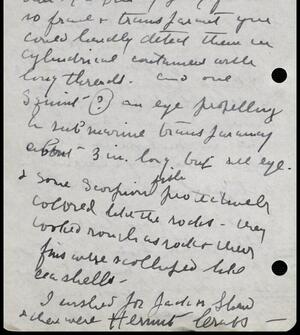 so frail & transparent you
could hardly detect them in
cylindrical container with
long threads. and one
Squint (?) an eye propelling
a submarine transparency
about 3 in. long but see eye.
& Some Scorpion fish protectively
colored like the rocks - they
looked rough as rock & their
fins were scalloped like
sea shells -
I wished for Jack
& there were Hermit Crabs -